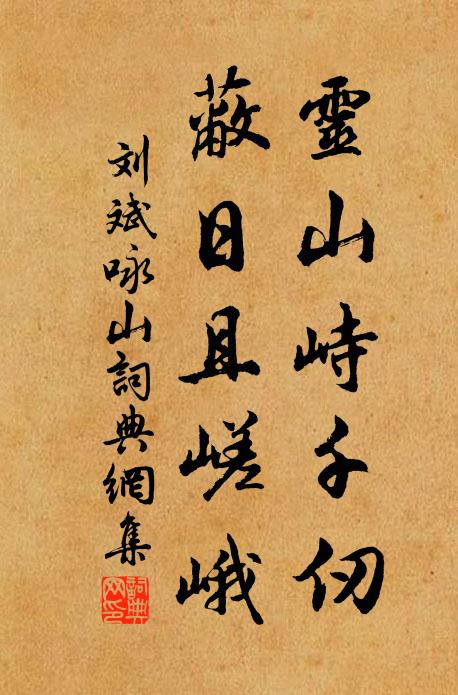 靈山峙千仞
蔽日且嵯峨
刘斌咏山詞典網集
詞典
网印